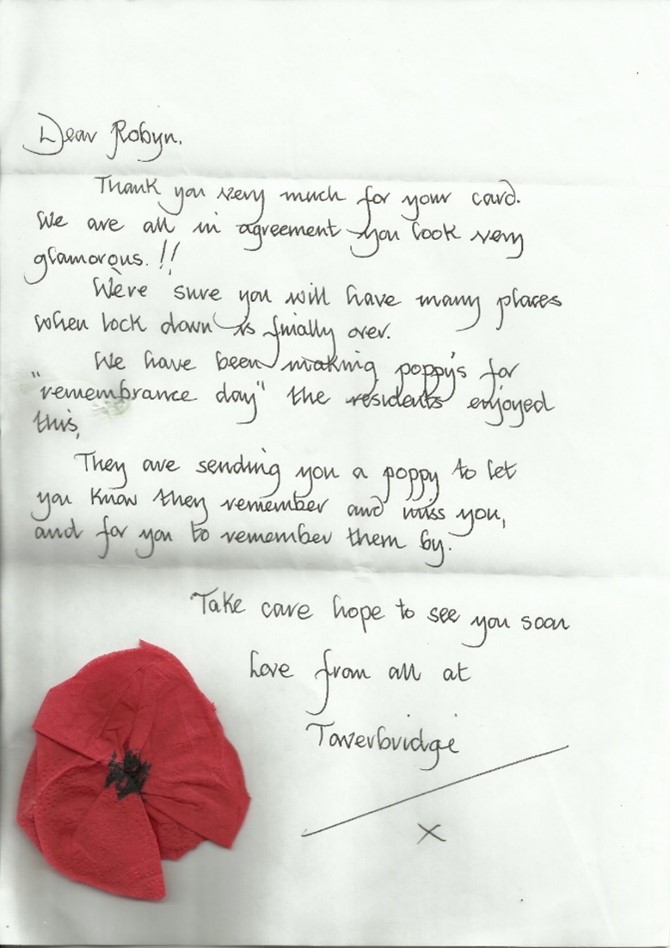 Dear Robyn.
Thank you very much for your card.
We are all in agreement you look very
glamorous. !!
We're sure you will have many places
when lock down is finally over.
We have been making poppy's for
"remembrance day" the residents enjoyed
this,
They are sending you a poppy to let
you know they remember and miss you,
and for you to remember them by.
Take care hope to see you soon
Love from all at
Taverbridge
X